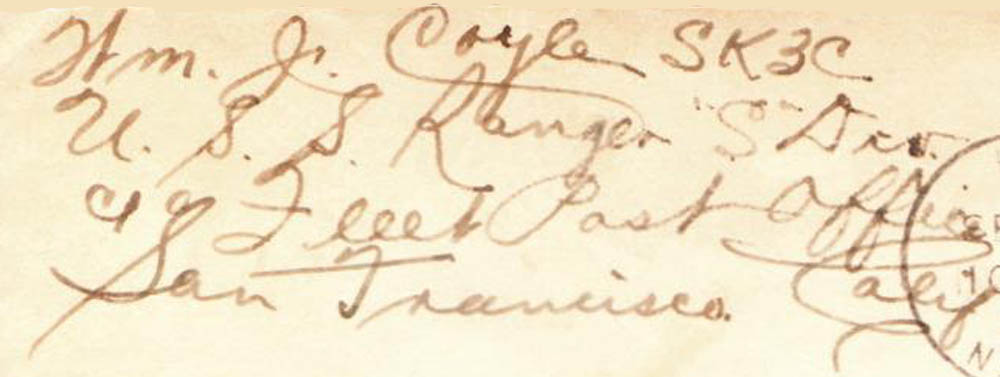 Wm. J. Coyle SK3C
U. S. S. Ranger "S" Div.
c/o Fleet Post Office
San Francisco. Calif